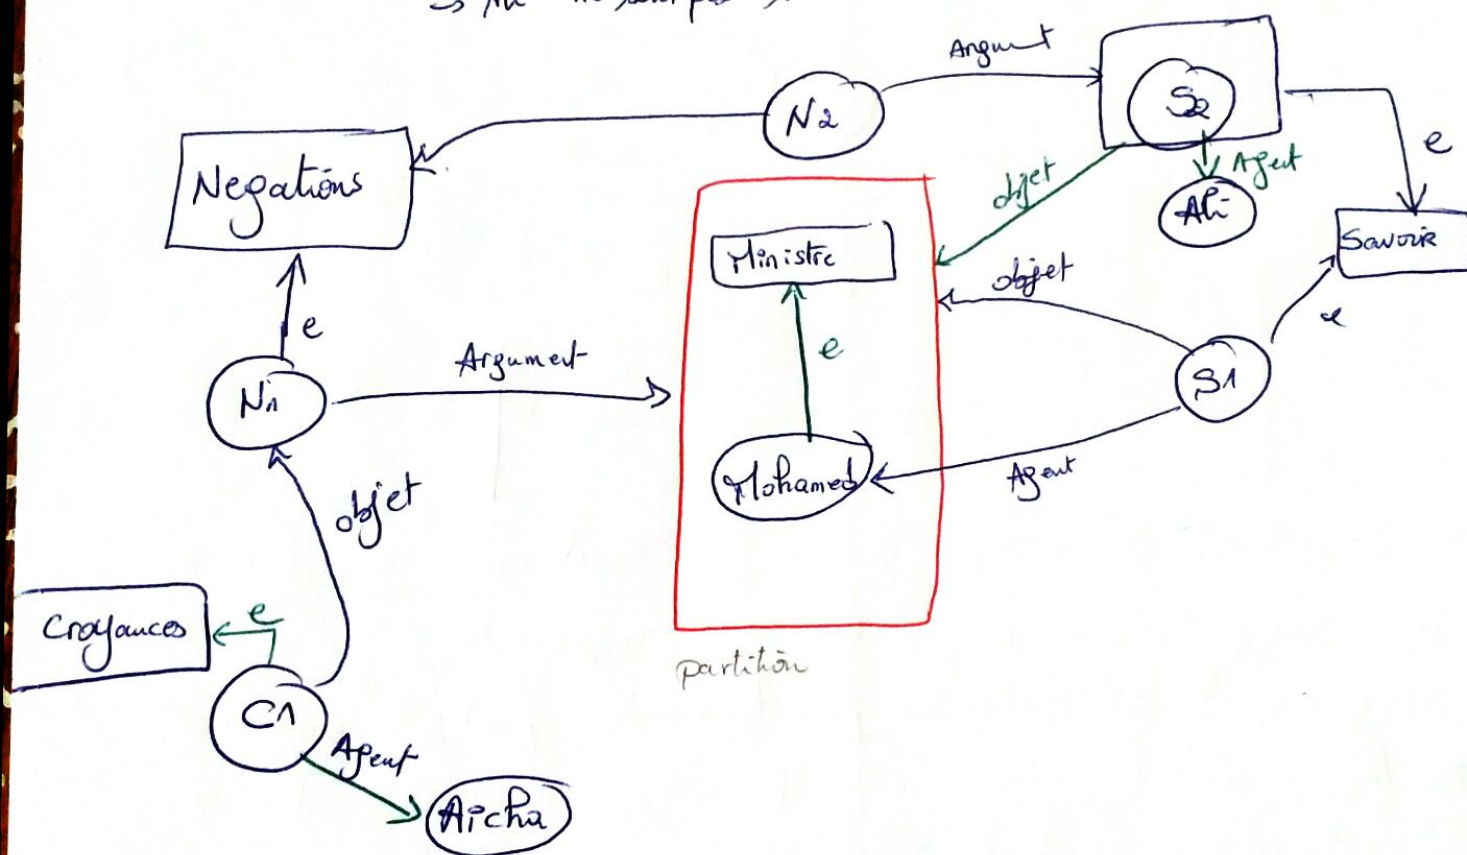 Argument
N2
S2
e
Negations
objet
Agent
Ali
Ministre
Savoir
objet
e
e
e
Argument
N1
S1
Mohamed
Agent
objet
Croyances
e
partition
C1
Agent
Aicha